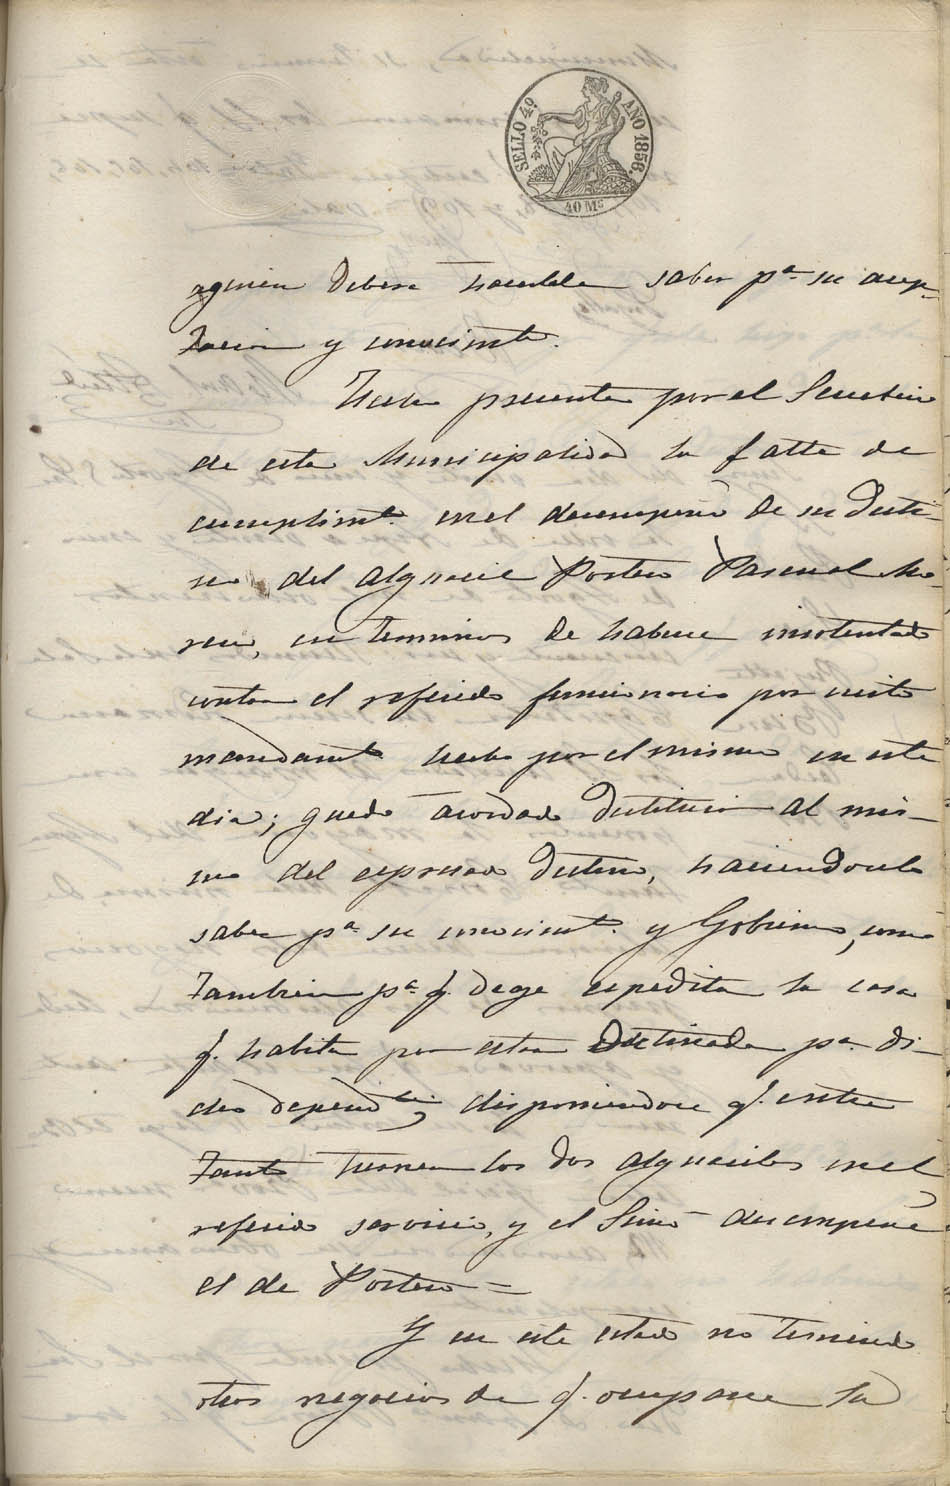 SELLO 4º. AÑO 1856.
40 Ms
aquien debera hacersele saber pª su acep-
tacion y conocimtº.
Hecho presente por el Secretario
de esta Municipalidad la falta de
cumplimtº. en el desempeño de su desti-
no del Alguacil Portero Pascual Mo-
reno, en terminos de haberse insolentado
contra el referido funcionario por cierto
mandamtº hecho por el mismo en este
dia; quedó acordado destituir al mis-
mo del espresado destino, haciendosele
saber pª su conocimtº. y Gobierno, como
tambien pª q. deje espedita la casa
q. habita por estar destinada pª di-
cho dependte; disponiendose q. entre
tanto turnen los dos alguaciles en el
referido servicio, y el desempeñe
el de Portero =
Y en este estado no teniendo
otros negocios de q. ocuparse la